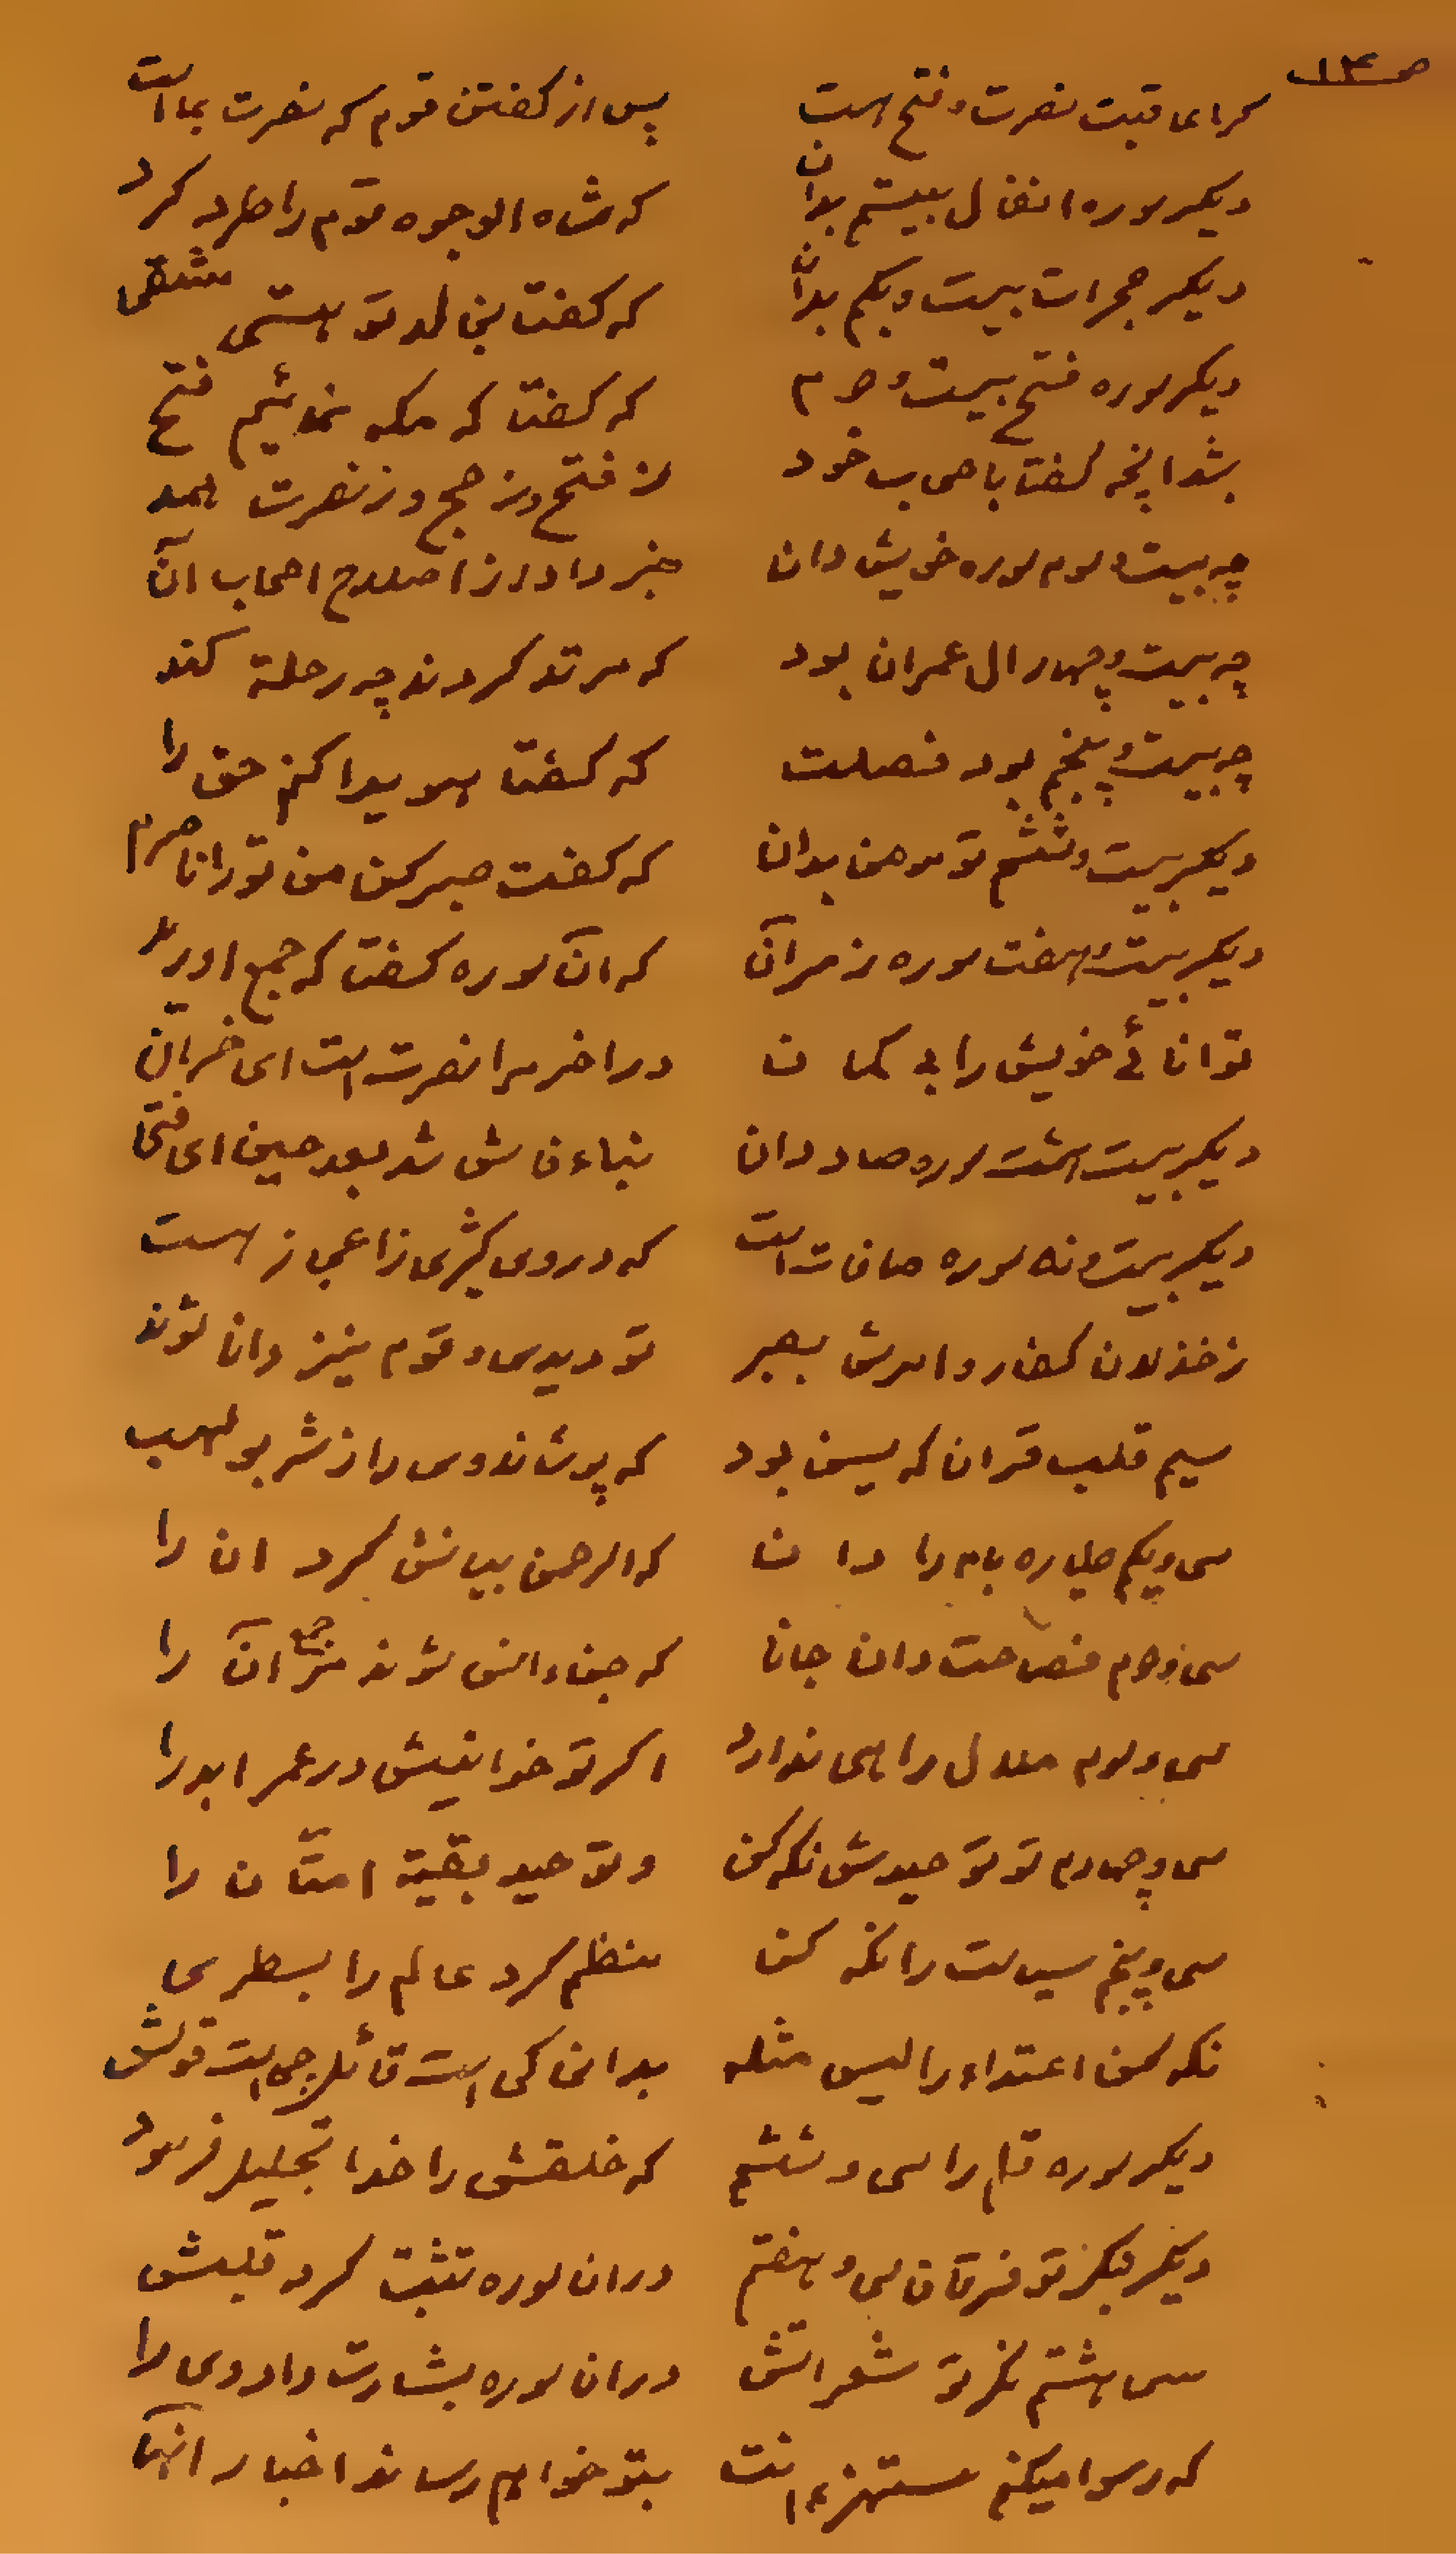 ص۱۴
که با عاقبت نصرت و فتح است پس از گفتن قوم که نصرت بما است
دیکر سوره انفال بیستم بدان که شاه الوجوه قوم را طرد کرد
دیکر حجرات بیست ویکم بدان که کفت بن تو هستی متقی
دیکر سوره فتح بیست و دوم که کفتا که مکه نمائیم فتح
بشد انچه کفتا باصحاب خود از فتح وز حج وز نصرت همه
چه بیست و سوم سوره خویش دان خبر داد از اصلاح اصحاب آن
چه بیست وچهار ال عمران بود که مرتد کردند چه رحلة کند
چه بیست و پنجم بود فصلت که کفتا هویدا کنم حق را
دیکر بیست و ششم تو مومن بدان که کفت صبر کن من تو را ناصرم
دیکر بیست و هفت سوره زمر آن که ان سوره کفتا که جمع اورید
توانائے خویش را بی کمان در اخر مرا نصرت است ای
دیکر بیست هشت سوره صاد دان بناء فاش شد بعد حین ای فتی
دیکر بیست و نه سوره صافات است که در وی کثیری ز اعجاز هست
ز خذلان کفار و امرش بصبر تو دیدی و قوم نیز دانا شوند
سیم قلب قران که یسن بود که پوشاند وی را ز شر بولهب
سی ویکم را دان که الرحمن بیانش کرد ان را
سی و دوم فصاحت دان جانا که جن و انس شوند جمع آن را
سی و سوم ملال راهی ندارد اکر تو خوانیش در عمر ابد را
سی و چهارم تو توحیدش نکه کن و توحید بقیة امتان را
سی و پنجم سیاست را نکه کن منظم کرد عالم را بسطری
نکه کن اعتداء را لیس مثله بدانی کی است قائل چی است قولش
دیکر سوره قلم را سی و ششم که خلقش را خدا تجلیل فرمود
دیکر بنکر تو فرقان سی و هفتم در ان سوره تثبت کرد قلبش
سی هشتم نکر تو شعراتش در ان سوره بشارت داد وی را
که رسوا میکنم مستهزءانت بتو خواهم رساند اخبار انها